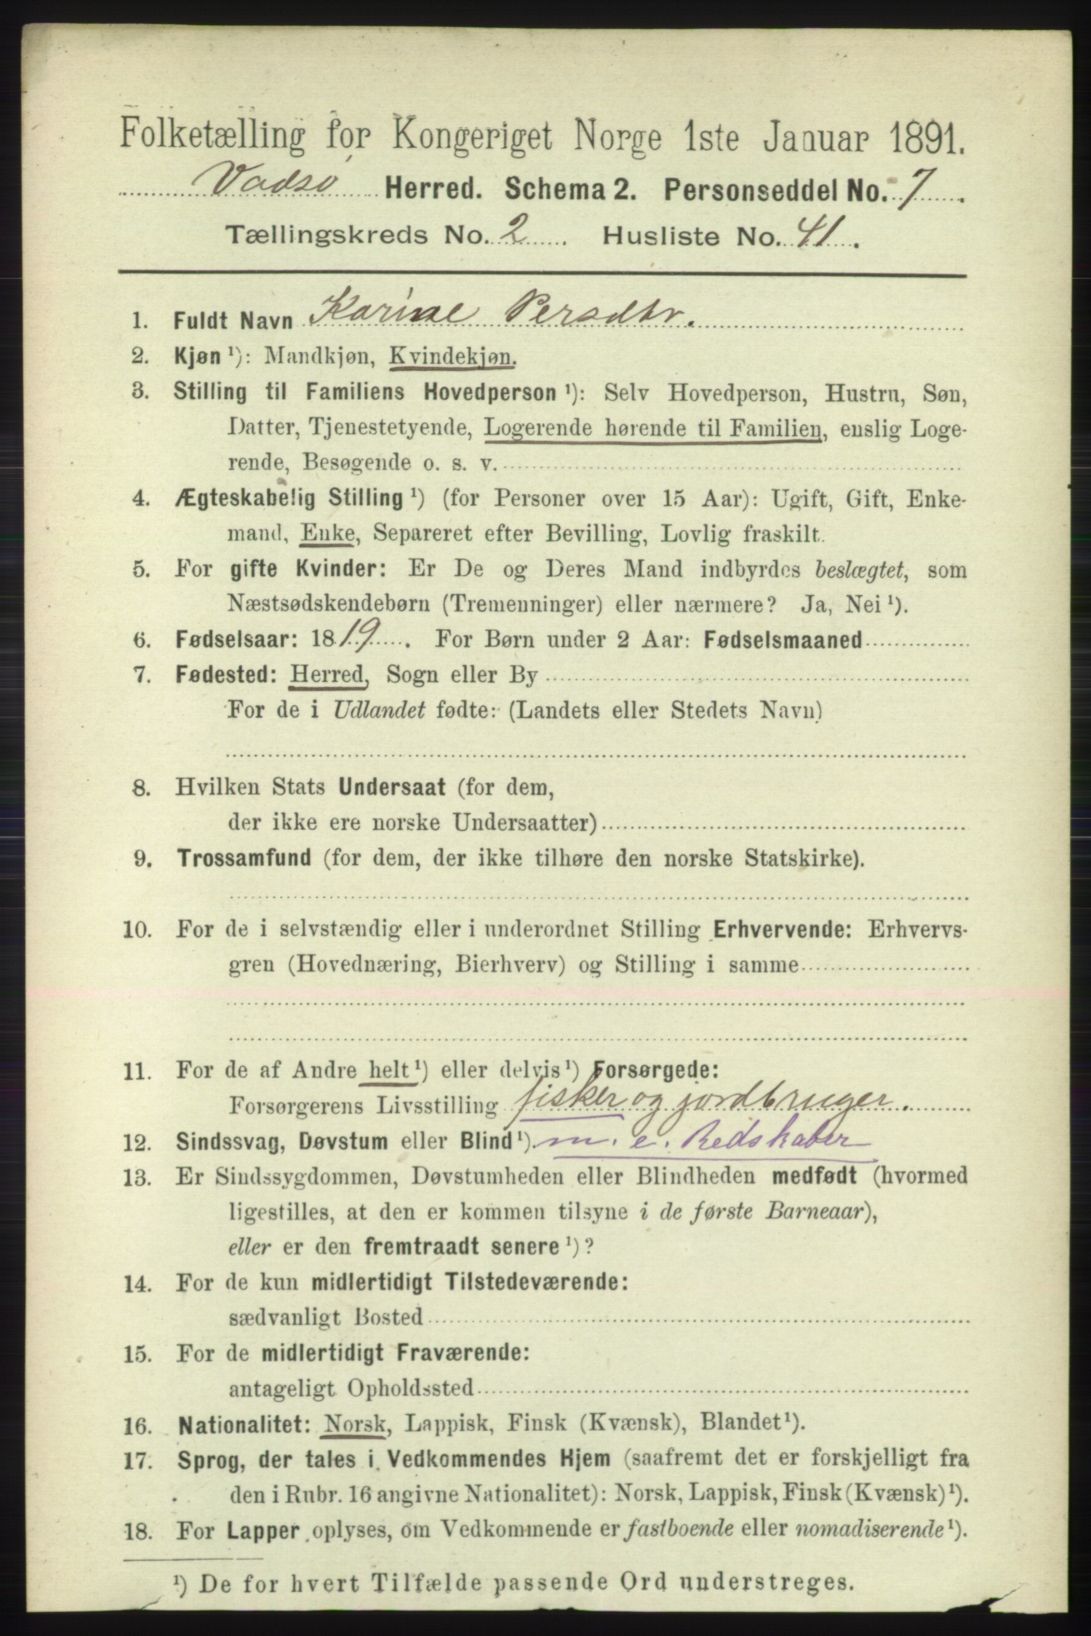 Folketælling for Kongeriget Norge 1ste Januar 1891.
Vadsø Herred. Schema 2. Personseddel No. 7.
Tællingskreds No. 2. Husliste No. 41.
1. Fuldt Navn Karine Persdtr.
2. Kjøn ¹): Mandkjøn, Kvindekjøn.
3. Stilling til Familiens Hovedperson ¹): Selv Hovedperson, Hustru, Søn,
Datter, Tjenestetyende, Logerende hørende til Familien, enslig Loge-
rende, Besøgende o. s. v.
4. Ægteskabelig Stilling ¹) (for Personer over 15 Aar): Ugift, Gift, Enke-
mand, Enke, Separeret efter Bevilling, Lovlig fraskilt.
5. For gifte Kvinder: Er De og Deres Mand indbyrdes beslægtet, som
Næstsødskendebørn (Tremenninger) eller nærmere? Ja, Nei ¹).
6. Fødselsaar: 1819. For Børn under 2 Aar: Fødselsmaaned
7. Fødested: Herred, Sogn eller By
For de i Udlandet fødte: (Landets eller Stedets Navn)
8. Hvilken Stats Undersaat (for dem,
der ikke ere norske Undersaatter)
9. Trossamfund (for dem, der ikke tilhøre den norske Statskirke).
10. For de i selvstændig eller i underordnet Stilling Erhvervende: Erhvervs-
gren (Hovednæring, Bierhverv) og Stilling i samme
11. For de af Andre helt ¹) eller delvis ¹) Forsørgede:
Forsørgerens Livsstilling fisker og jordbruger.
12. Sindssvag, Døvstum eller Blind ¹). m. e. Redskaber
13. Er Sindssygdommen, Døvstumheden eller Blindheden medfødt (hvormed
ligestilles, at den er kommen tilsyne i de første Barneaar),
eller er den fremtraadt senere ¹)?
14. For de kun midlertidigt Tilstedeværende:
sædvanligt Bosted
15. For de midlertidigt Fraværende:
antageligt Opholdssted
16. Nationalitet: Norsk, Lappisk, Finsk (Kvænsk), Blandet ¹).
17. Sprog, der tales i Vedkommendes Hjem (saafremt det er forskjelligt fra
den i Rubr. 16 angivne Nationalitet): Norsk, Lappisk, Finsk (Kvænsk) ¹).
18. For Lapper oplyses, om Vedkommende er fastboende eller nomadiserende ¹).
¹) De for hvert Tilfælde passende Ord understreges.